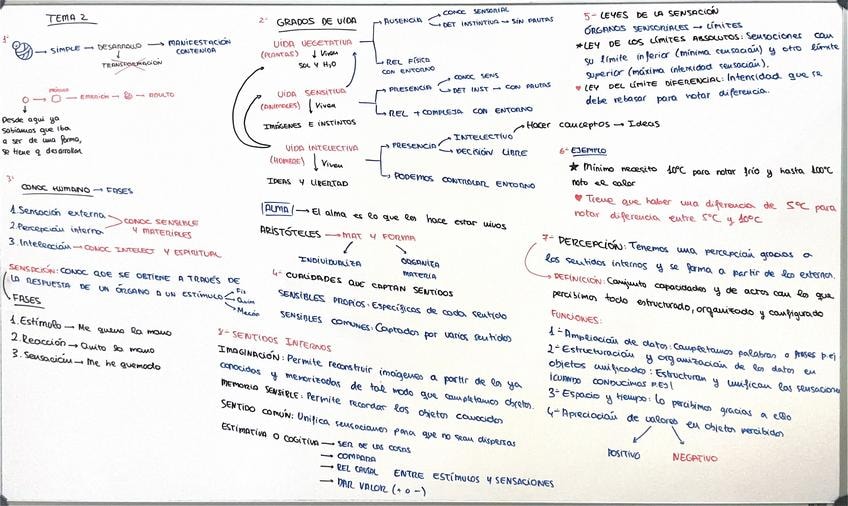 TEMA 2
1-
SIMPLE → DESARROLLO → MANIFESTACIÓN CONTENIDA
TRANSFORMACIÓN
EMBRIÓN → ADULTO
Desde aquí ya
sabíamos que iba
a ser de una forma,
se tiene q desarrollar
2- GRADOS DE VIDA
VIDA VEGETATIVA
(PLANTAS) ↓ Viven
SOL Y H2O
AUSENCIA
CONOC SENSORIAL
DET INSTINTIVA → SIN PAUTAS
REL FÍSICA
CON ENTORNO
VIDA SENSITIVA
(ANIMALES) ↓ Viven
IMÁGENES E INSTINTOS
PRESENCIA
CONOC SENS
DET INST → CON PAUTAS
REL + COMPLEJA CON ENTORNO
VIDA INTELECTIVA
(HOMBRE) ↓ Viven
IDEAS Y LIBERTAD
PRESENCIA
INTELECTIVO → Hacer conceptos → Ideas
DECISIÓN LIBRE
PODEMOS CONTROLAR ENTORNO
ALMA → El alma es lo que los hace estar vivos
ARISTÓTELES → MAT Y FORMA
INDIVIDUALIZA
ORGANIZA
MATERIA
3-
CONOC HUMANO → FASES
1. Sensación externa
2. Percepción interna
CONOC SENSIBLE
Y MATERIALES
3. Intelección → CONOC INTELECT Y ESPIRITUAL
SENSACIÓN: CONOC QUE SE OBTIENE A TRAVÉS DE
LA RESPUESTA DE UN ÓRGANO A UN ESTÍMULO
Fis
Quim
Mecán
FASES
1. Estímulo → Me quemo la mano
2. Reacción → Quito la mano
3. Sensación → Me he quemado
4- CUALIDADES QUE CAPTAN SENTIDOS
SENSIBLES PROPIOS: Específicas de cada sentido
SENSIBLES COMUNES: Captados por varios sentidos
5- LEYES DE LA SENSACIÓN
ÓRGANOS SENSORIALES → LÍMITES
★ LEY DE LOS LÍMITES ABSOLUTOS: Sensaciones con
su límite inferior (mínima sensación) y otro límite
superior (máxima intensidad sensación).
♥ LEY DEL LÍMITE DIFERENCIAL: Intensidad que se
debe rebasar para notar diferencia.
6- EJEMPLO
★ Mínimo necesito 10ºC para notar frío y hasta 100ºC
noto el calor
♥ Tiene que haber una diferencia de 5ºC para
notar diferencia entre 5ºC y 10ºC
7- PERCEPCIÓN: Tenemos una percepción gracias a
los sentidos internos y se forma a partir de los externos.
DEFINICIÓN: Conjunto capacidades y de actos con los que
percibimos todo estructurado, organizado y configurado
FUNCIONES:
1- Ampliación de datos: completamos palabras o frases p.ej
2- Estructuración y organización de los datos en
objetos unificados: Estructuran y unifican las sensaciones
(cuando conducimos p.ej)
3- Espacio y tiempo: lo percibimos gracias a ello
4- Apreciación de valores en objetos percibidos
POSITIVO
NEGATIVO
8- SENTIDOS INTERNOS
IMAGINACIÓN: Permite reconstruir imágenes a partir de las ya
conocidas y memorizadas de tal modo que completamos objetos.
MEMORIA SENSIBLE: Permite recordar los objetos conocidos
SENTIDO COMÚN: Unifica sensaciones para que no sean dispersas
ESTIMATIVA O COGITIVA → SER DE LAS COSAS
→ COMPARA
→ REL CAUSAL ENTRE ESTÍMULOS Y SENSACIONES
→ DAR VALOR (+ o -)